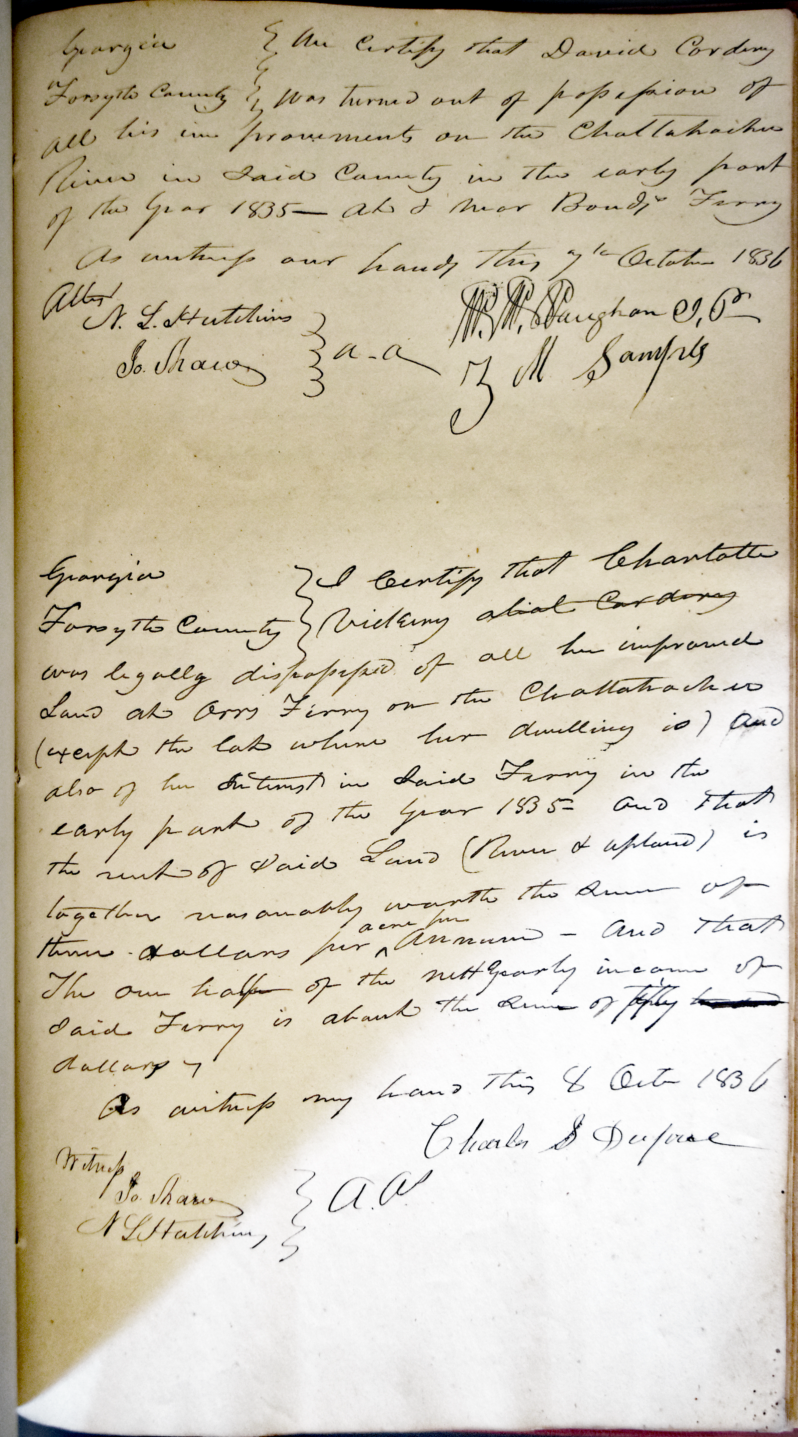 Georgia } We Certify that David Cordery
Forsyth County } was turned out of possession of
all his improvements on the Chattahochee
River in Said County in the early part
of the Year 1835— at & near Bonds Ferry
As witness our hands this 7th October 1836
Attest
N. L. Hutchins
Jo. Shaw } a-a
W. W. Vaughan J, P
M Samples
Georgia } I Certify that Charlotte
Forsyth County } Vickery alias Cordery
was legally dispossessed of all her improved
Land at Orrs Ferry on the Chattahochee
(except the lot where her dwelling is) and
also of her Interest in Said Ferry in the
early part of the Year 1835— and that
the rent of Said Land (River & upland) is
together reasonably worth the Sum of
three dollars per acre per Annum — and that
The one half of the nett Yearly income of
Said Ferry is about the Sum of fifty
dollars
As witness my hand this 8 Octr 1836
Charles
Witness
Jo. Shaw
N L Hutchins } A. A